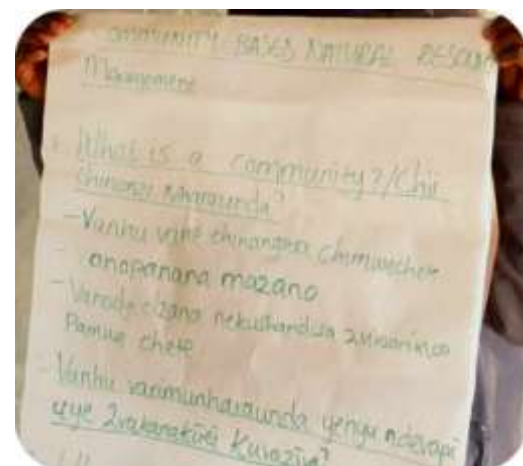 OMMUNITY BASED NATURAL RESOUR
Management
What is a community?/Chii
chinonzi nharaunda?
- Vanhu vane chinangwa chimwechete
- anopanana mazano
- pamwe chete
- Vanhu varimunharaunda yenyu ndevapi
uye zvakanakirei kuvaziva?